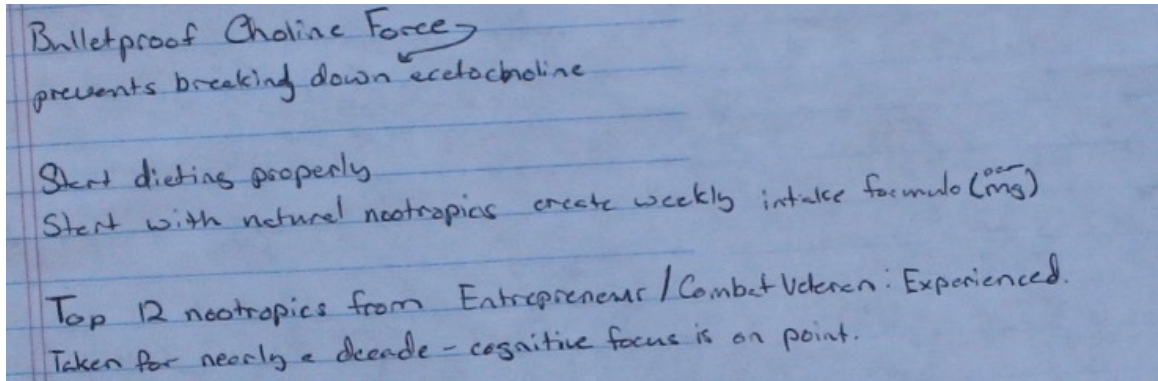 Bulletproof Choline Force
prevents breaking down acetocholine
Start dieting properly
Start with natural nootropics create weekly intake formula (mg)
Top 12 nootropics from Entrepreneur / Combat Veteran: Experienced.
Taken for nearly a decade - cognitive focus is on point.